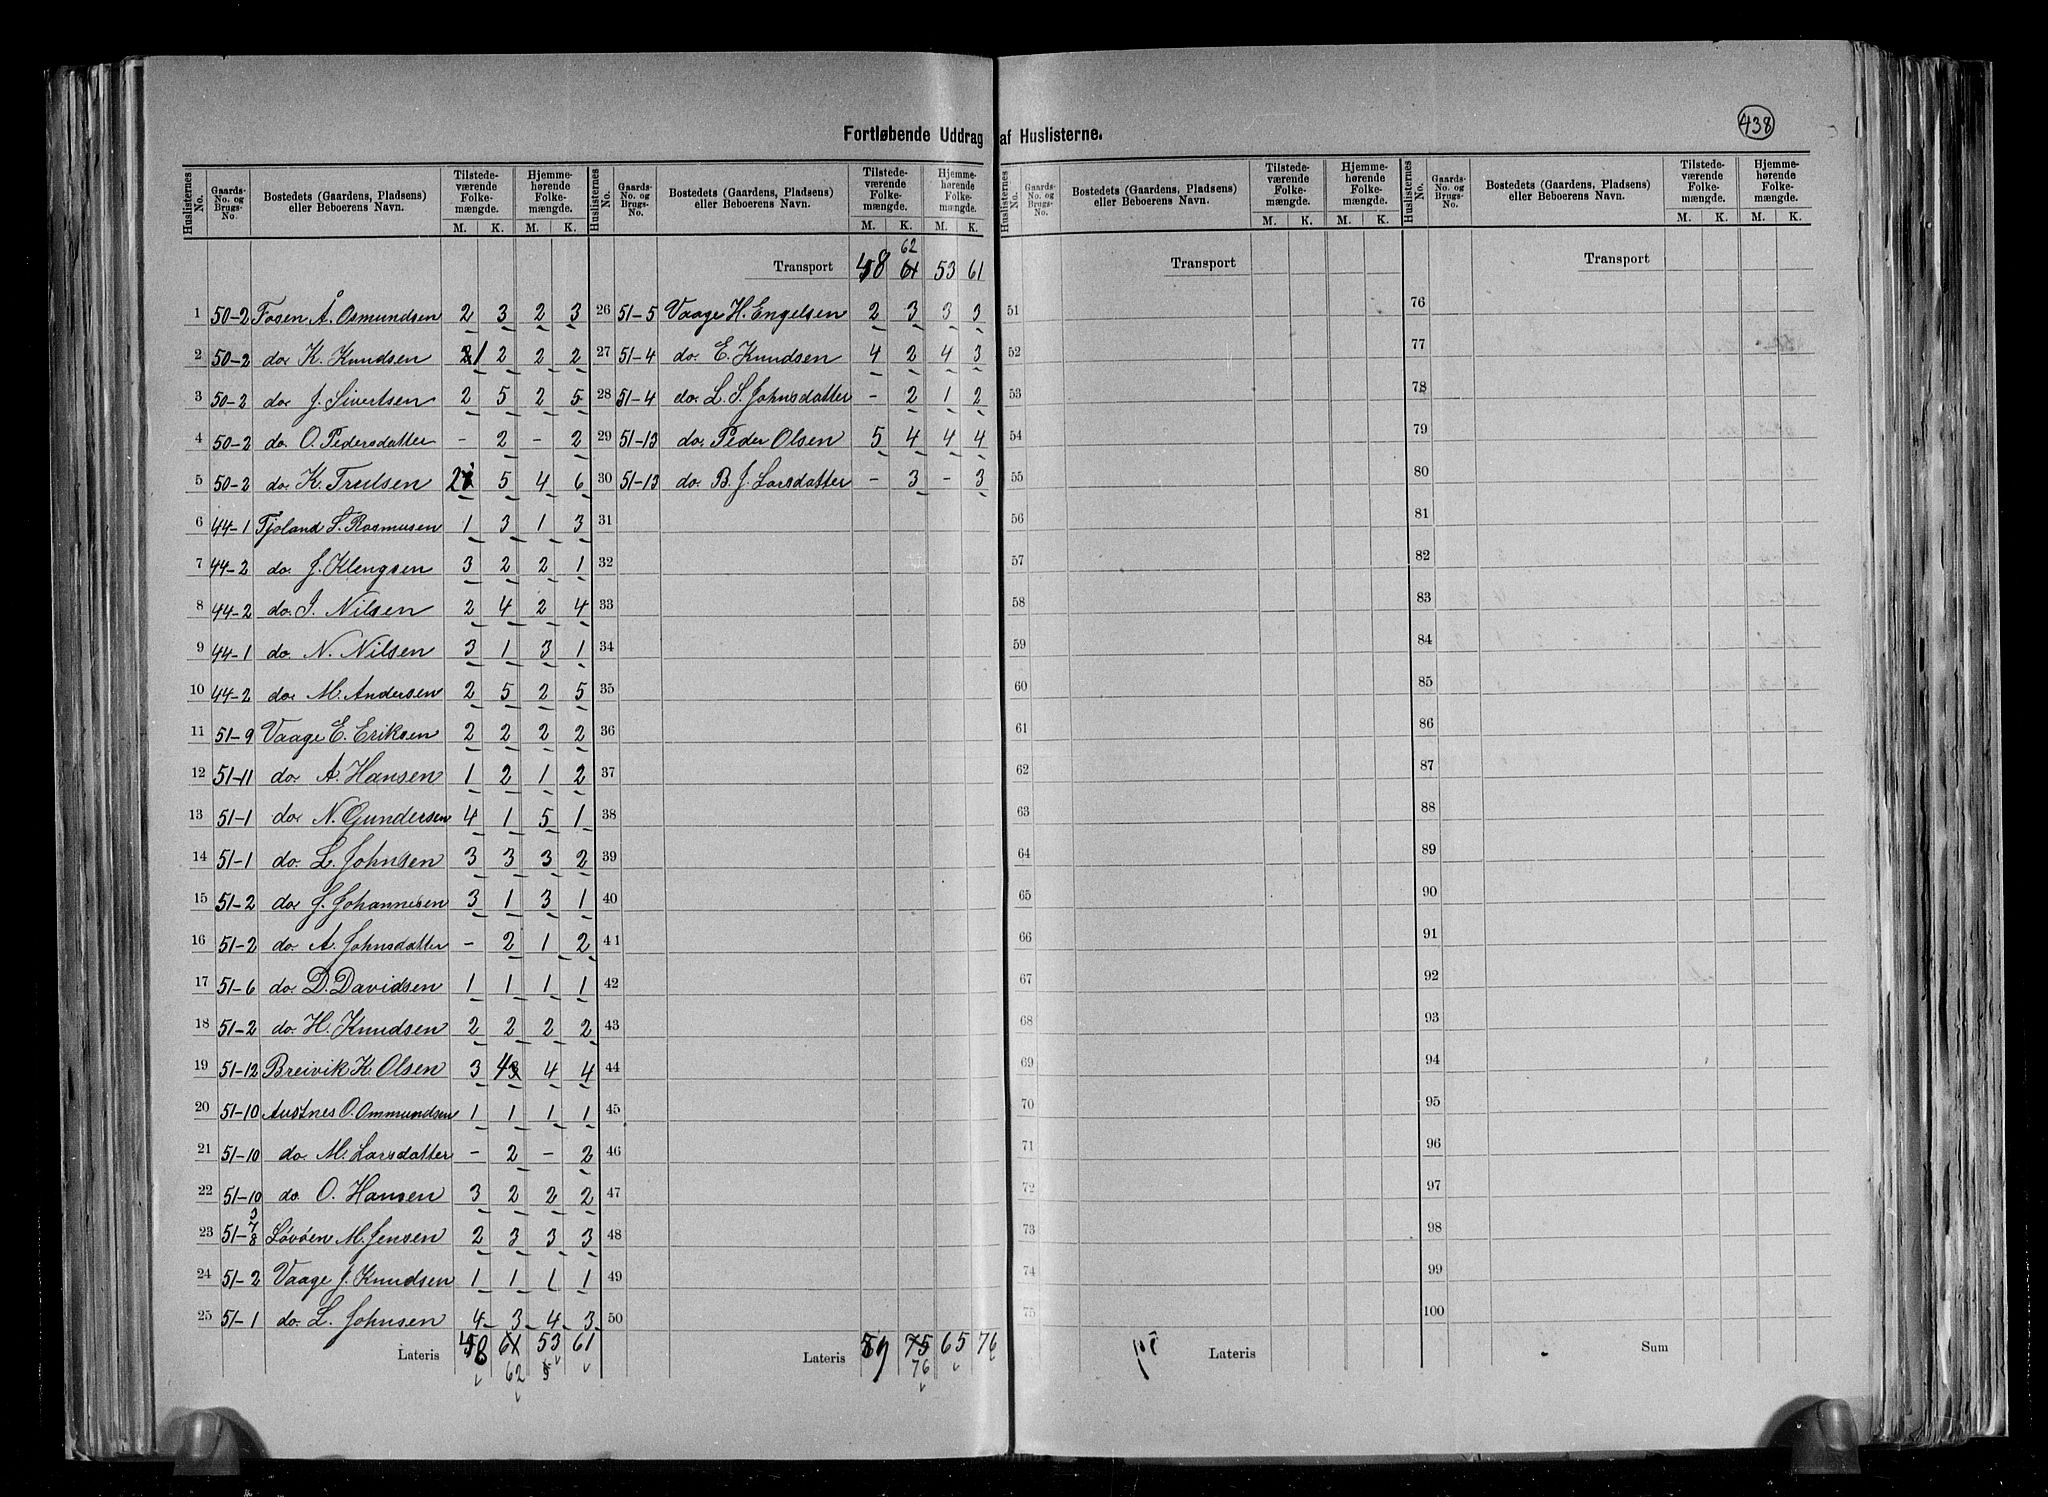 438
Fortløbende Uddrag af Huslisterne.
Huslisternes No. Gaards-No. og Brugs-No. Bostedets (Gaardens, Pladsens) eller Beboerens Navn. Tilstedeværende Folkemængde. M. K. Hjemmehørende Folkemængde. M. K.
1 50-2 Fosen Å. Osmundsen 2 3 2 3
2 50-2 do. K. Knudsen 1 2 2 2
3 50-2 do. J. Sivertsen 2 5 2 5
4 50-2 do. O. Pedersdatter - 2 - 2
5 50-2 do. K. Trulsen 2 5 4 6
6 44-1 Tjoland S. Rasmusen 1 3 1 3
7 44-2 do. J. Klengsen 3 2 2 1
8 44-2 do. I. Nilsen 2 4 2 4
9 44-1 do. N. Nilsen 3 1 3 1
10 44-2 do. M. Andersen 2 5 2 5
11 51-9 Vaage E. Eriksen 2 2 2 2
12 51-11 do. A. Hansen 1 2 1 2
13 51-1 do. N. Gundersen 4 1 5 1
14 51-1 do. L. Johnsen 3 3 3 2
15 51-2 do. J. Johannesen 3 1 3 1
16 51-2 do. A. Johnsdatter - 2 1 2
17 51-6 do. D. Davidsen 1 1 1 1
18 51-2 do. H. Knudsen 2 2 2 2
19 51-12 Breivik K. Olsen 3 4 4 4
20 51-10 Austnes O. Ommundsen 1 1 1 1
21 51-10 do. M. Larsdatter - 2 - 2
22 51-10 do. O. Hansen 3 2 2 2
23 51-3 7 8 Løvøen M. Jensen 2 3 3 3
24 51-2 Vaage J. Knudsen 1 1 1 1
25 51-1 do. L. Johnsen 4 3 4 3
Lateris 48 61 53 61
62
Huslisternes No. Gaards-No. og Brugs-No. Bostedets (Gaardens, Pladsens) eller Beboerens Navn. Tilstedeværende Folkemængde. M. K. Hjemmehørende Folkemængde. M. K.
62
Transport 48 61 53 61
26 51-5 Vaage H. Engelsen 2 3 3 3
27 51-4 do. E. Knudsen 4 2 4 3
28 51-4 do. L. S. Johnsdatter - 2 1 2
29 51-13 do. Peder Olsen 5 4 4 4
30 51-13 do. B. J. Larsdatter - 3 - 3
31
32
33
34
35
36
37
38
39
40
41
42
43
44
45
46
47
48
49
50
Lateris 75 65 76
76
Huslisternes No. Gaards-No. og Brugs-No. Bostedets (Gaardens, Pladsens) eller Beboerens Navn. Tilstedeværende Folkemængde. M. K. Hjemmehørende Folkemængde. M. K.
Transport
51
52
53
54
55
56
57
58
59
60
61
62
63
64
65
66
67
68
69
70
71
72
73
74
75
Lateris
Huslisternes No. Gaards-No. og Brugs-No. Bostedets (Gaardens, Pladsens) eller Beboerens Navn. Tilstedeværende Folkemængde. M. K. Hjemmehørende Folkemængde. M. K.
Transport
76
77
78
79
80
81
82
83
84
85
86
87
88
89
90
91
92
93
94
95
96
97
98
99
100
Sum